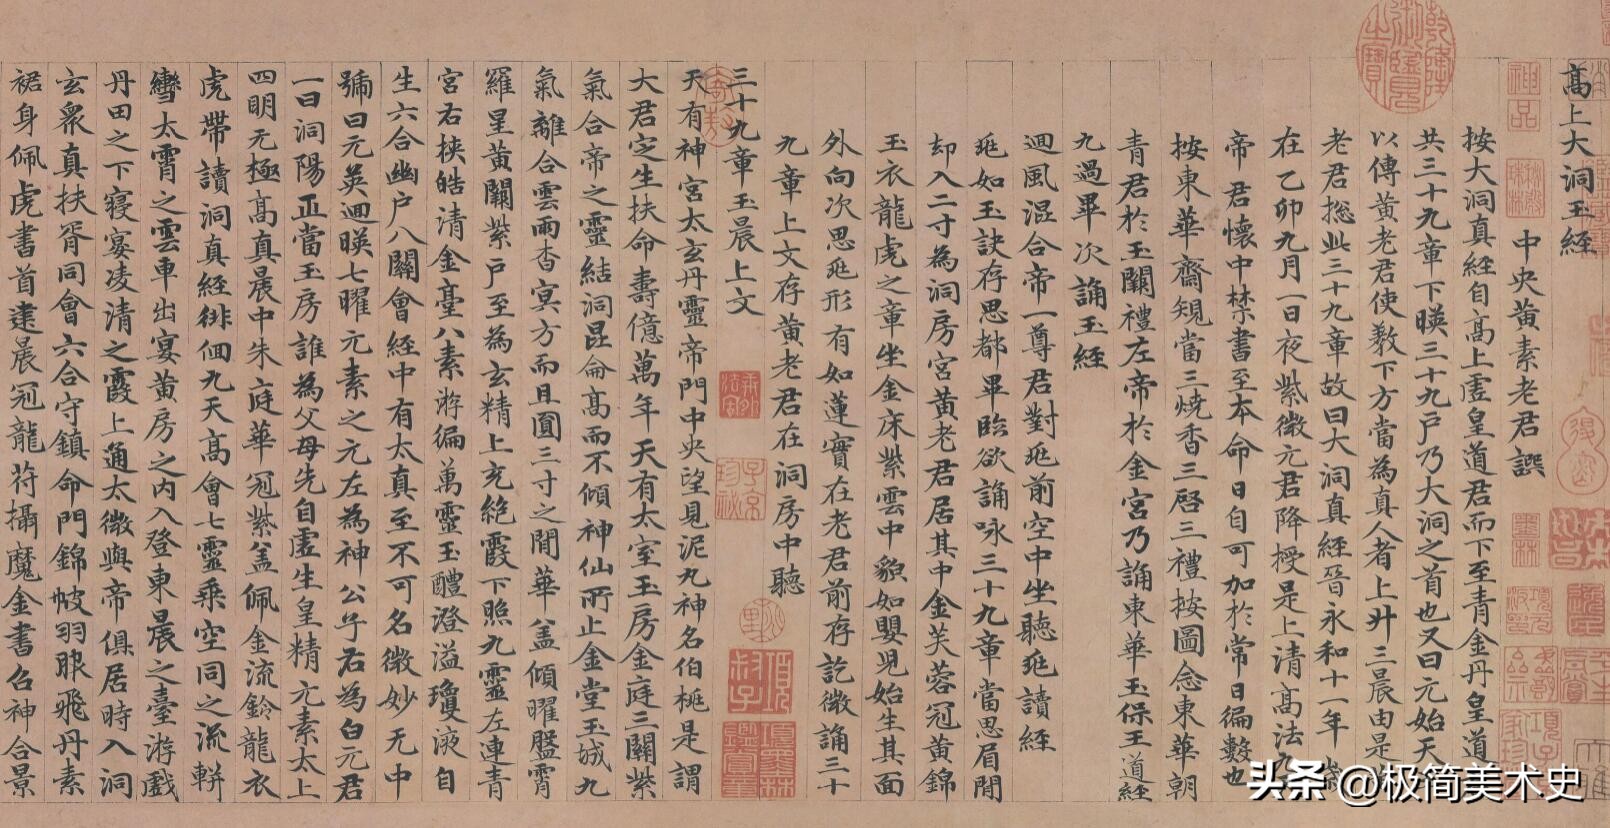 高上大洞玉経
中央黃素老君譔
按大洞真経自高上虛皇道君而下至青金丹皇道
共三十九章下暎三十九戶乃大洞之首也又曰元始天
以傳黃老君使教下方當為真人者上升三晨由是
老君捴此三十九章故曰大洞真経晉永和十一年歲
在乙卯九月一日夜紫微元君降授是上清髙法九
帝君懷中禁書至本命日自可加於常日徧數也
按東華齋䂓當三燒香三啓三禮按圖念東華朝
青君於玉闕禮左帝於金宮乃誦東華玉保王道経
九過畢次誦玉経
迴風混合帝一尊君對在前空中坐聽在讀経
在如玉訣存思都畢臨欲誦咏三十九章當思眉間
却入二寸為洞房宮黃老君居其中金芙蓉冠黃錦
玉衣龍虎之章坐金床紫雲中貌如嬰兒始生其面
外向次思在形有如蓮實在老君前存訖微誦三十
九章上文存黃老君在洞房中聽
三十九章玉晨上文
天有神宮太玄丹靈帝門中央望見泥丸神名伯桃是謂
大君定生扶命壽億萬年天有太室玉房金庭三關紫
氣合帝之靈結洞昆侖高而不傾神仙所止金堂玉城九
氣離合雲雨杳冥方而且圓三寸之間華盖傾曜盤霄
羅星黃闕紫戶至為玄精上充絕霞下照九靈左連青
宮右挾皓清金臺八素游徧萬靈玉醴澄溢瓊液自
生六合幽戶八關會経中有太真至不可名微妙无中
號曰元英迴暎七曜元素之元左為神公子右為白元君
一曰洞陽正當玉房誰為父母先自虛生皇精元素太上
四明无極髙真晨中朱庭華冠紫盖佩金流鈴龍衣
虎帶讀洞真経徘徊九天高會七靈乘空同之流軿
轡太霄之雲車出宴黃房之內入登東晨之臺游戲
丹田之下寢宴凌清之霞上通太微與帝俱居時入洞
玄衆真扶胥同會六合守鎮命門錦帔羽服飛丹素
裙身佩虎書首建晨冠龍苻攝魔金書召神合景
神品
乾隆御覽之寶
子京珍秘
項叔子
项墨林鑒賞章
墨林
头条 @极简美术史